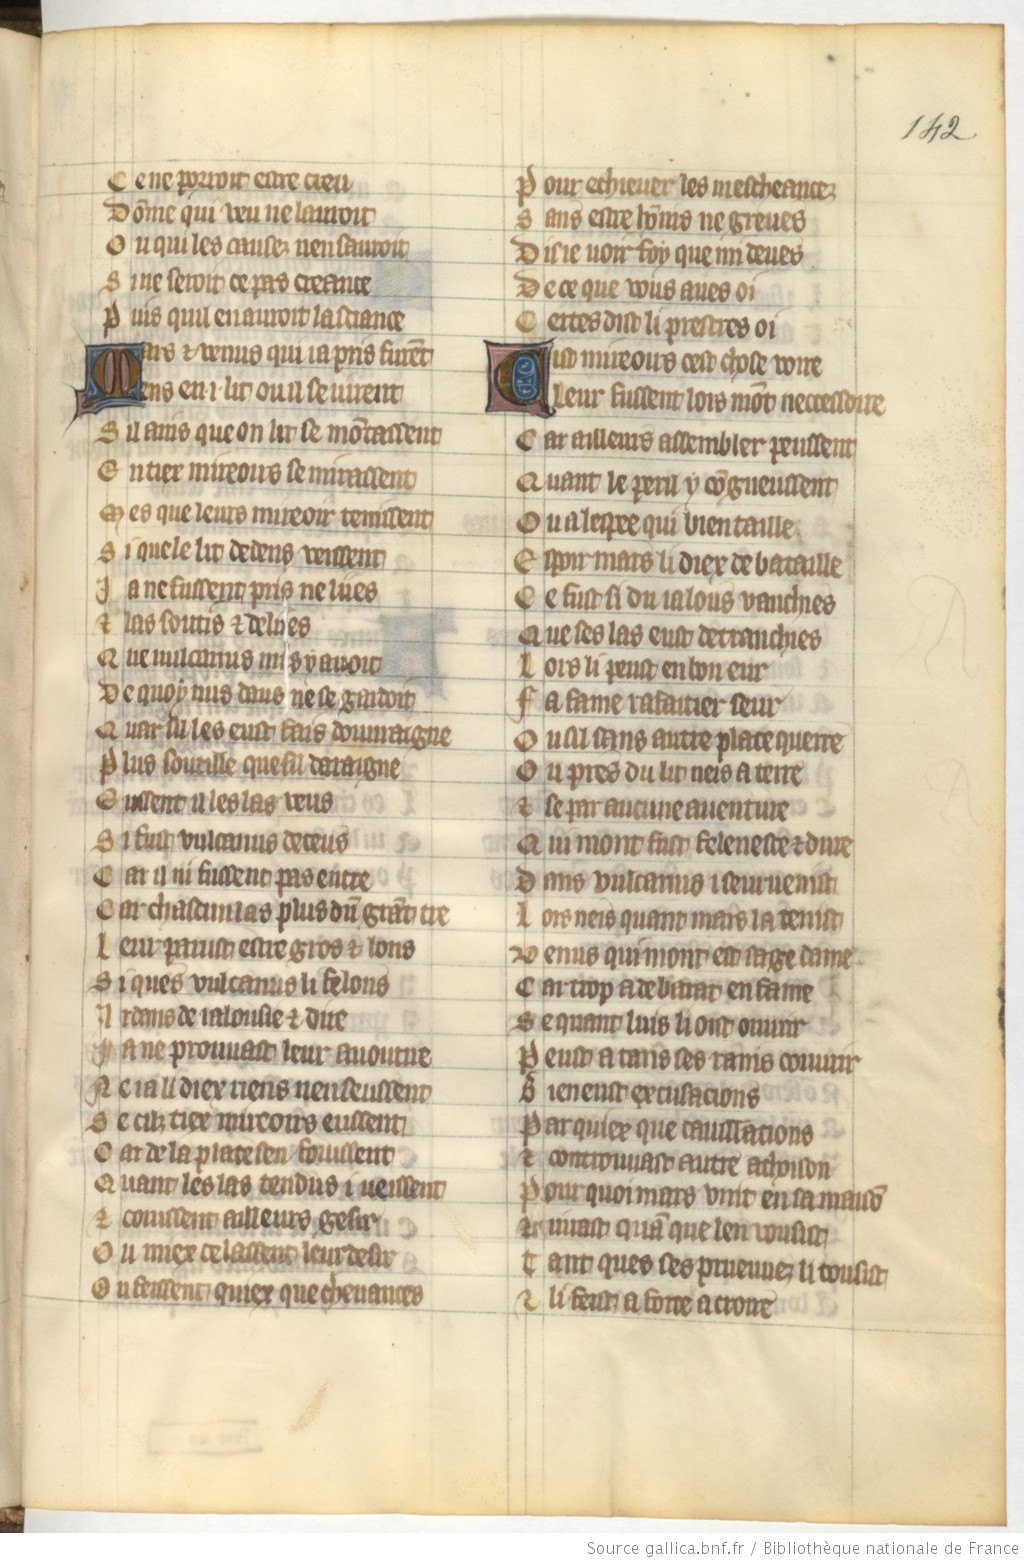 142
Ce ne porroit estre creu
Dōme qui veu ne lauroit
Ou qui les causez nen sauroit
Si ne seroit ce pas creance
Puis quil en auroit la sciance
Mars ⁊ venus qui ia pris furēt
Ens en .i. lit ou il se virent
Sil ains que on lit se mōtassent
En tiex mireours se mirassent
Mes que leurs mireoir tenissent
Si que le lit dedens veissent
Ja ne fussent pris ne lies
⁊ las soutis ⁊ delies
Que vulcanus mis y auoit
De quoy nus daus ne se gardoit
Quar sil les eust fais douuraigne
Plus soutille que fil daraigne
Eussent il les las veus
Si fust vulcanus deceus
Car il ni fussent pas entre
Car chascun las plus dū grāt tre
Leur parust estre gros ⁊ lons
Si ques vulcanus li felons
Ardans de ialousie ⁊ dire
Ja ne prouuast leur auoutire
Ne ia li diex riens nen seussent
Se cilz tiex mireoirs eussent
Car de la place sen fouissent
Quant les las tendus i veissent
⁊ courissent ailleurs gesir
Ou miex celassent leur desir
Ou feissent quiex que cheuances
Pour echieuer les mescheancez
Sans estre hōnis ne greues
Di ie voir foy que mi deues
De ce que vous aues oi
Certes dist li prestres oi
Cist mireours cest chose voire
Leur fussent lors mōt neccessoire
Car ailleurs assembler peussent
Quant le peril y cōgneussent
Ou a lespee qui bien taille
Espoir mars li diex de bataille
Ce fust si du ialous vanchies
Que ses las eust detranchies
Lors li peust en bon eur
Sa fame rafaitier seur
Ou lil sans autre place querre
Ou pres du lit neis a terre
⁊ se par aucune auenture
Qui mont fust felenesse ⁊ dure
Dans vulcanus i seuruenist
Lors neis quant mars la tenist
Venus qui mont est sage dame
Car trop a de barat en fame
Se quant luis li ost ouurir
Peust a tans ses rains couurir
Bien eust excusacions
Par quiex que cauillacions
⁊ controuuast autre achoison
Pour quoi mars vint en sa maisō
⁊ iurast quā que len vousist
Tant ques ses prueuuez li tousist
⁊ li feist a force acroire
Source gallica.bnf.fr / Bibliothèque nationale de France